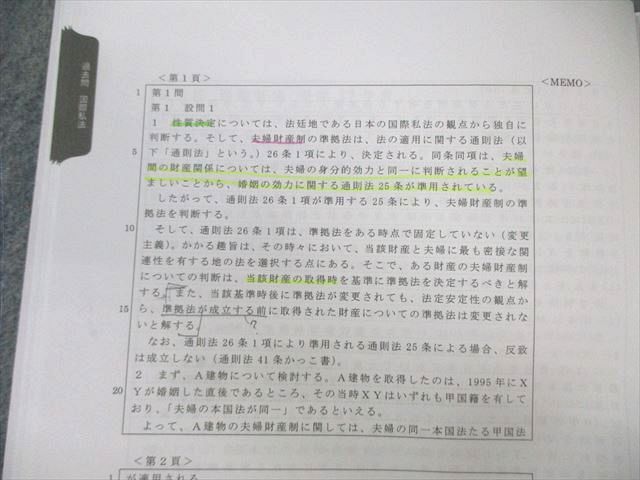 過去問 国際私法
＜第１頁＞
＜MEMO＞
1 第１問
第１ 設問１
１ 性質決定については、法廷地である日本の国際私法の観点から独自に
判断する。そして、夫婦財産制の準拠法は、法の適用に関する通則法（以
5 下「通則法」という。）26条１項により、決定される。同条同項は、夫婦
間の財産関係については、夫婦の身分的効力と同一に判断されることが望
ましいことから、婚姻の効力に関する通則法25条が準用されている。
したがって、通則法26条１項が準用する25条により、夫婦財産制の準
拠法を判断する。
10 そして、通則法26条１項は、準拠法をある時点で固定していない（変更
主義）。かかる趣旨は、その時々において、当該財産と夫婦に最も密接な関
連性を有する地の法を選択する点にある。そこで、ある財産の夫婦財産制
についての判断は、当該財産の取得時を基準に準拠法を決定するべきと解
する。また、当該基準時後に準拠法が変更されても、法定安定性の観点か
15 ら、準拠法が成立する前に取得された財産についての準拠法は変更されな
いと解する。
?
なお、通則法26条１項により準用される通則法25条による場合、反致
は成立しない（通則法41条かっこ書）。
２ まず、Ａ建物について検討する。Ａ建物を取得したのは、1995年にＸ
20 Ｙが婚姻した直後であるところ、その当時ＸＹはいずれも甲国籍を有して
おり、「夫婦の本国法が同一」であるといえる。
よって、Ａ建物の夫婦財産制に関しては、夫婦の同一本国法たる甲国法
＜第２頁＞
1 が適用される